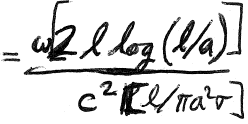 = ω[2 l log (l/a)] / c² [l/πa²σ]